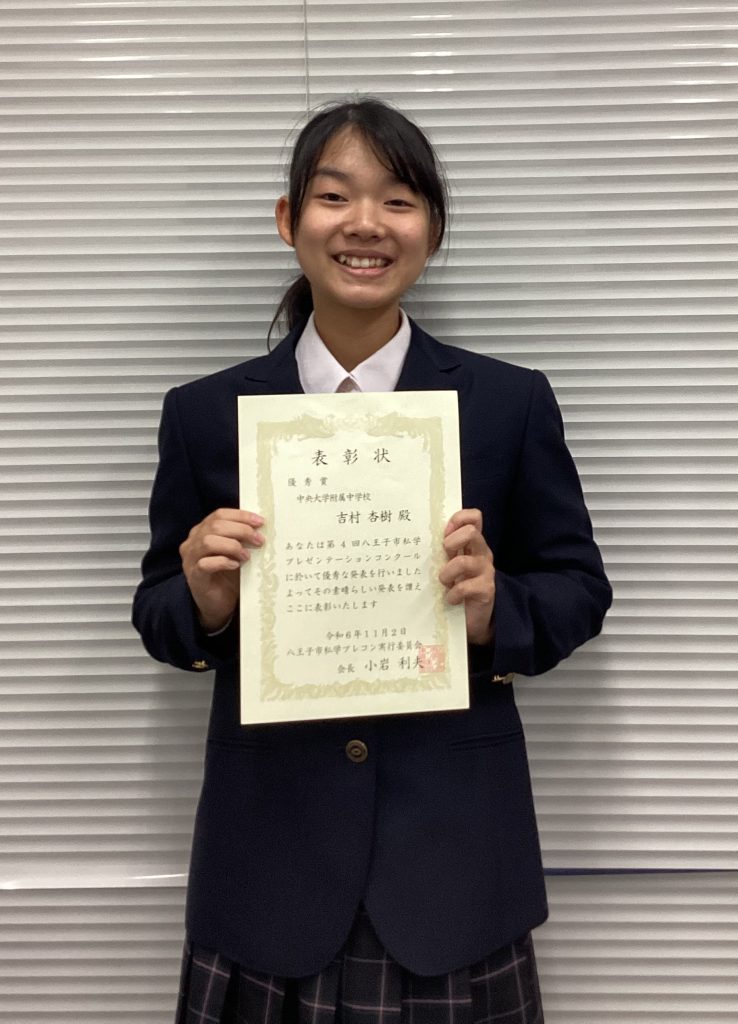 表彰状
優秀賞
中央大学附属中学校
吉村 杏樹 殿
あなたは第4回八王子市私学
プレゼンテーションコンクール
に於いて優秀な発表を行いました
よってその素晴らしい発表を讃え
ここに表彰いたします
令和6年11月2日
八王子市私学プレコン実行委員会
会長 小岩 利夫